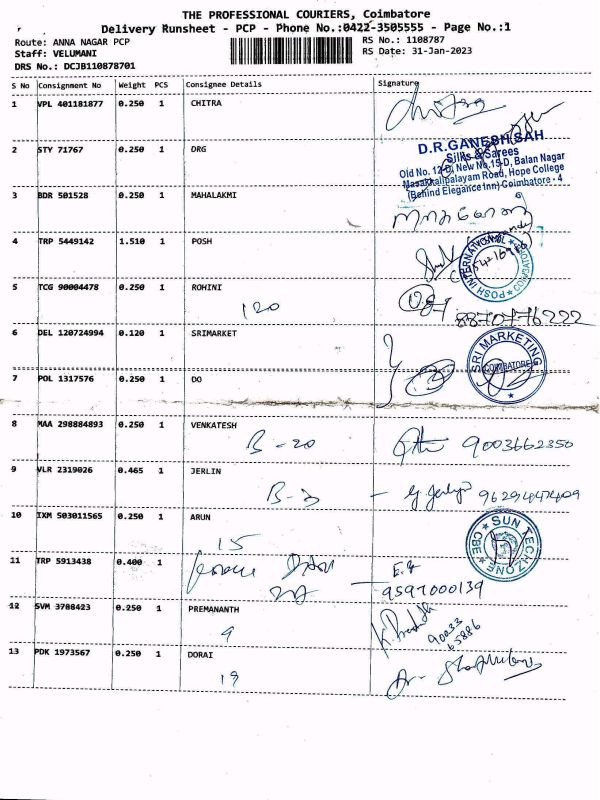 THE PROFESSIONAL COURIERS, Coimbatore
Delivery Runsheet - PCP - Phone No.:0422-3505555 - Page No.:1
Route: ANNA NAGAR PCP RS No.: 1108787
Staff: VELUMANI RS Date: 31-Jan-2023
DRS No.: DCJB110878701
S No Consignment No Weight PCS Consignee Details Signature
1 VPL 401181877 0.250 1 CHITRA
2 STY 71767 0.250 1 DRG
D.R.GANESH SAH
Silks & Sarees
Old No. 12-D, New No.15-D, Balan Nagar
Masakkalipalayam Road, Hope College
(Behind Elegance Inn) Coimbatore - 4
3 BDR 501528 0.250 1 MAHALAKMI
4 TRP 5449142 1.510 1 POSH
POSH INTERNATIONAL COIMBATORE
5 TCG 90004478 0.250 1 ROHINI
120
8870776222
6 DEL 120724994 0.120 1 SRIMARKET
SRI MARKETING
COIMBATORE
7 POL 1317576 0.250 1 DO
8 MAA 298884893 0.250 1 VENKATESH
B-20 9003662350
9 VLR 2319026 0.465 1 JERLIN
B-3
10 IXM 503011565 0.250 1 ARUN
15
SUN TECHZONE CBE
11 TRP 5913438 0.400 1
9597000139
12 SVM 3708423 0.250 1 PREMANANTH
9
90033
65886
13 PDK 1973567 0.250 1 DORAI
19